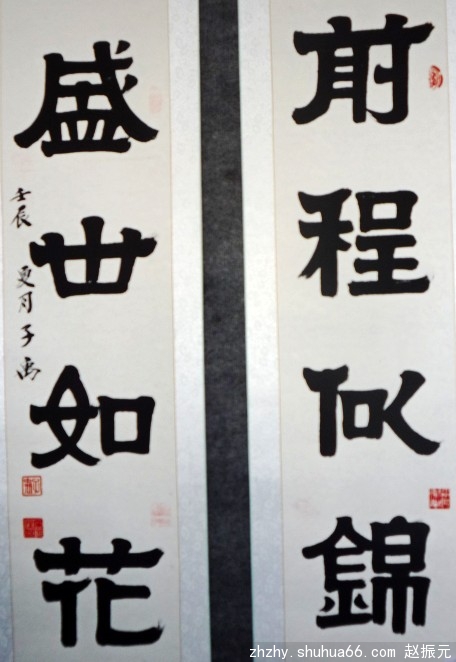 前程似錦
盛世如花
壬辰 夏月 子
zhzhy.shuhua66.com 赵振元